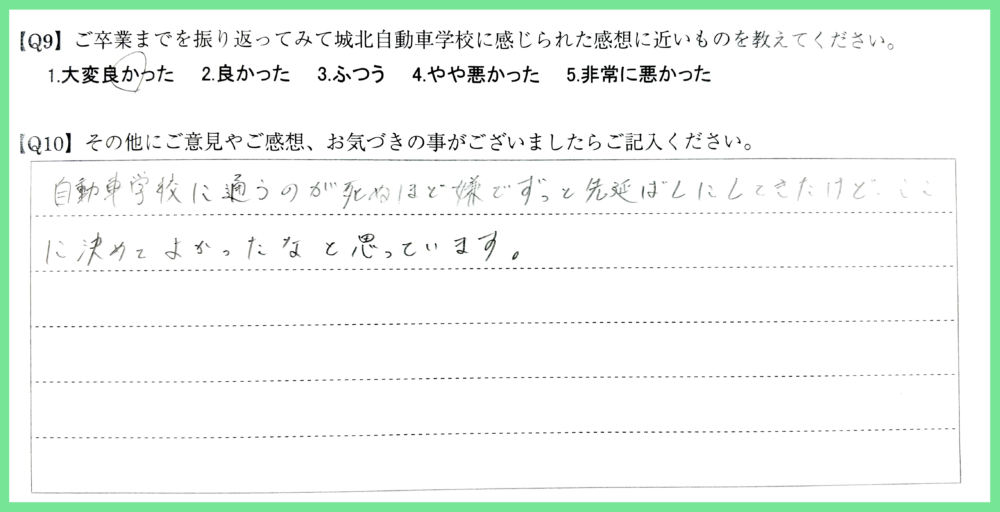 【Q9】ご卒業までを振り返ってみて城北自動車学校に感じられた感想に近いものを教えてください。
1.大変良かった 2.良かった 3.ふつう 4.やや悪かった 5.非常に悪かった
【Q10】その他にご意見やご感想、お気づきの事がございましたらご記入ください。
自動車学校に通うのが死ぬほど嫌でずっと先延ばしにしてきたけど、ここ
に決めてよかったなと思っています。